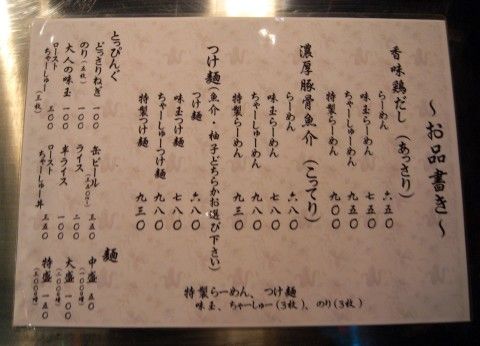 ～お品書き～
香味鶏だし（あっさり）
らーめん 六五〇
味玉らーめん 七五〇
ちゃーしゅーらーめん 九五〇
特製らーめん 九〇〇
濃厚豚骨魚介（こってり）
らーめん 六八〇
味玉らーめん 七八〇
ちゃーしゅーらーめん 九八〇
特製らーめん 九三〇
つけ麺（魚介・柚子どちらかお選び下さい）
つけ麺 六八〇
味玉つけ麺 七八〇
ちゃーしゅーつけ麺 九八〇
特製つけ麺 九三〇
とっぴんぐ
どっさりねぎ 一〇〇
のり（五枚） 一〇〇
大人の味玉 一〇〇
ローストちゃーしゅー（五枚） 三〇〇
缶ビール 三五〇
ライス 二〇〇
半ライス 一〇〇
ローストちゃーしゅー丼 三五〇
麺
中盛 五〇
大盛 一〇〇
特盛 一五〇
特製らーめん、つけ麺
味玉、ちゃーしゅー(3枚)、のり(3枚)